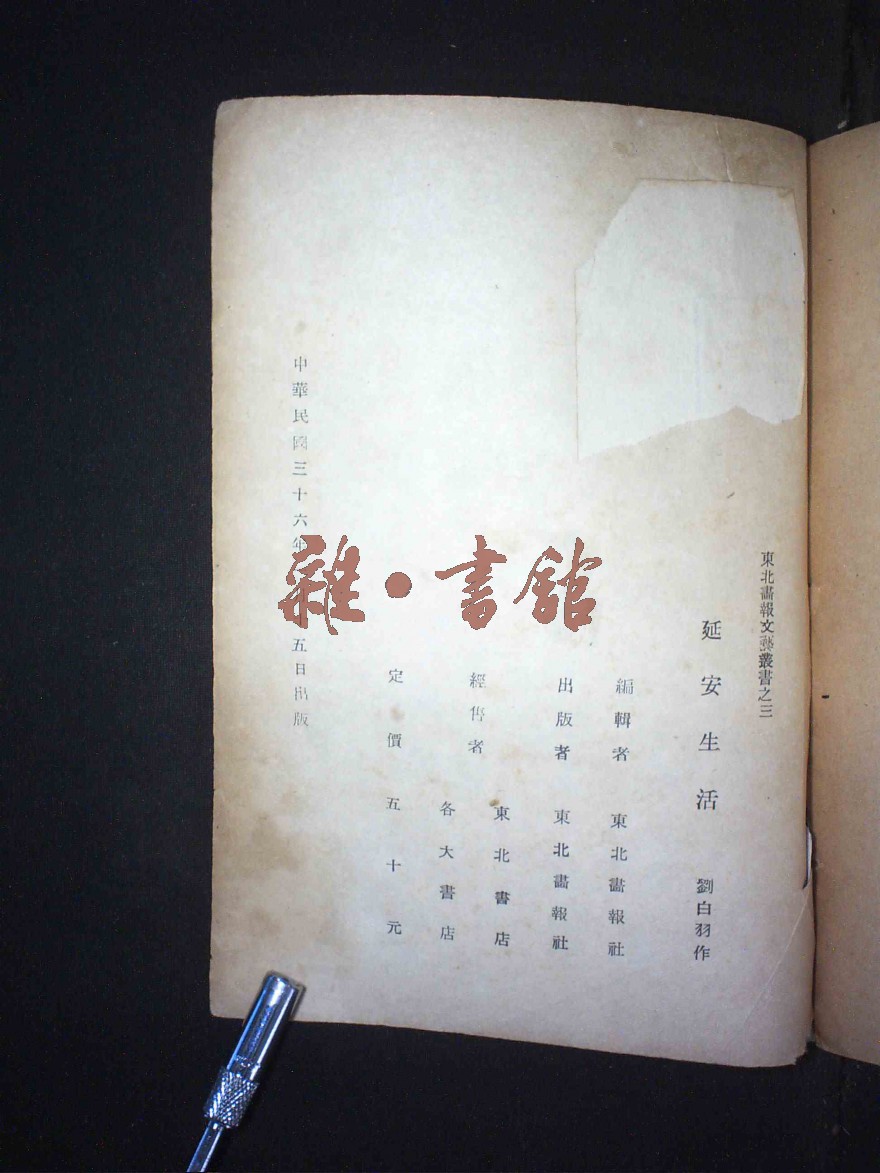 東北畫報文藝叢書之三
延安生活 劉白羽作
編輯者 東北畫報社
出版者 東北畫報社
經售者 東北書店
各大書店
定價五十元
中華民國三十六年
五日出版
雜·書館